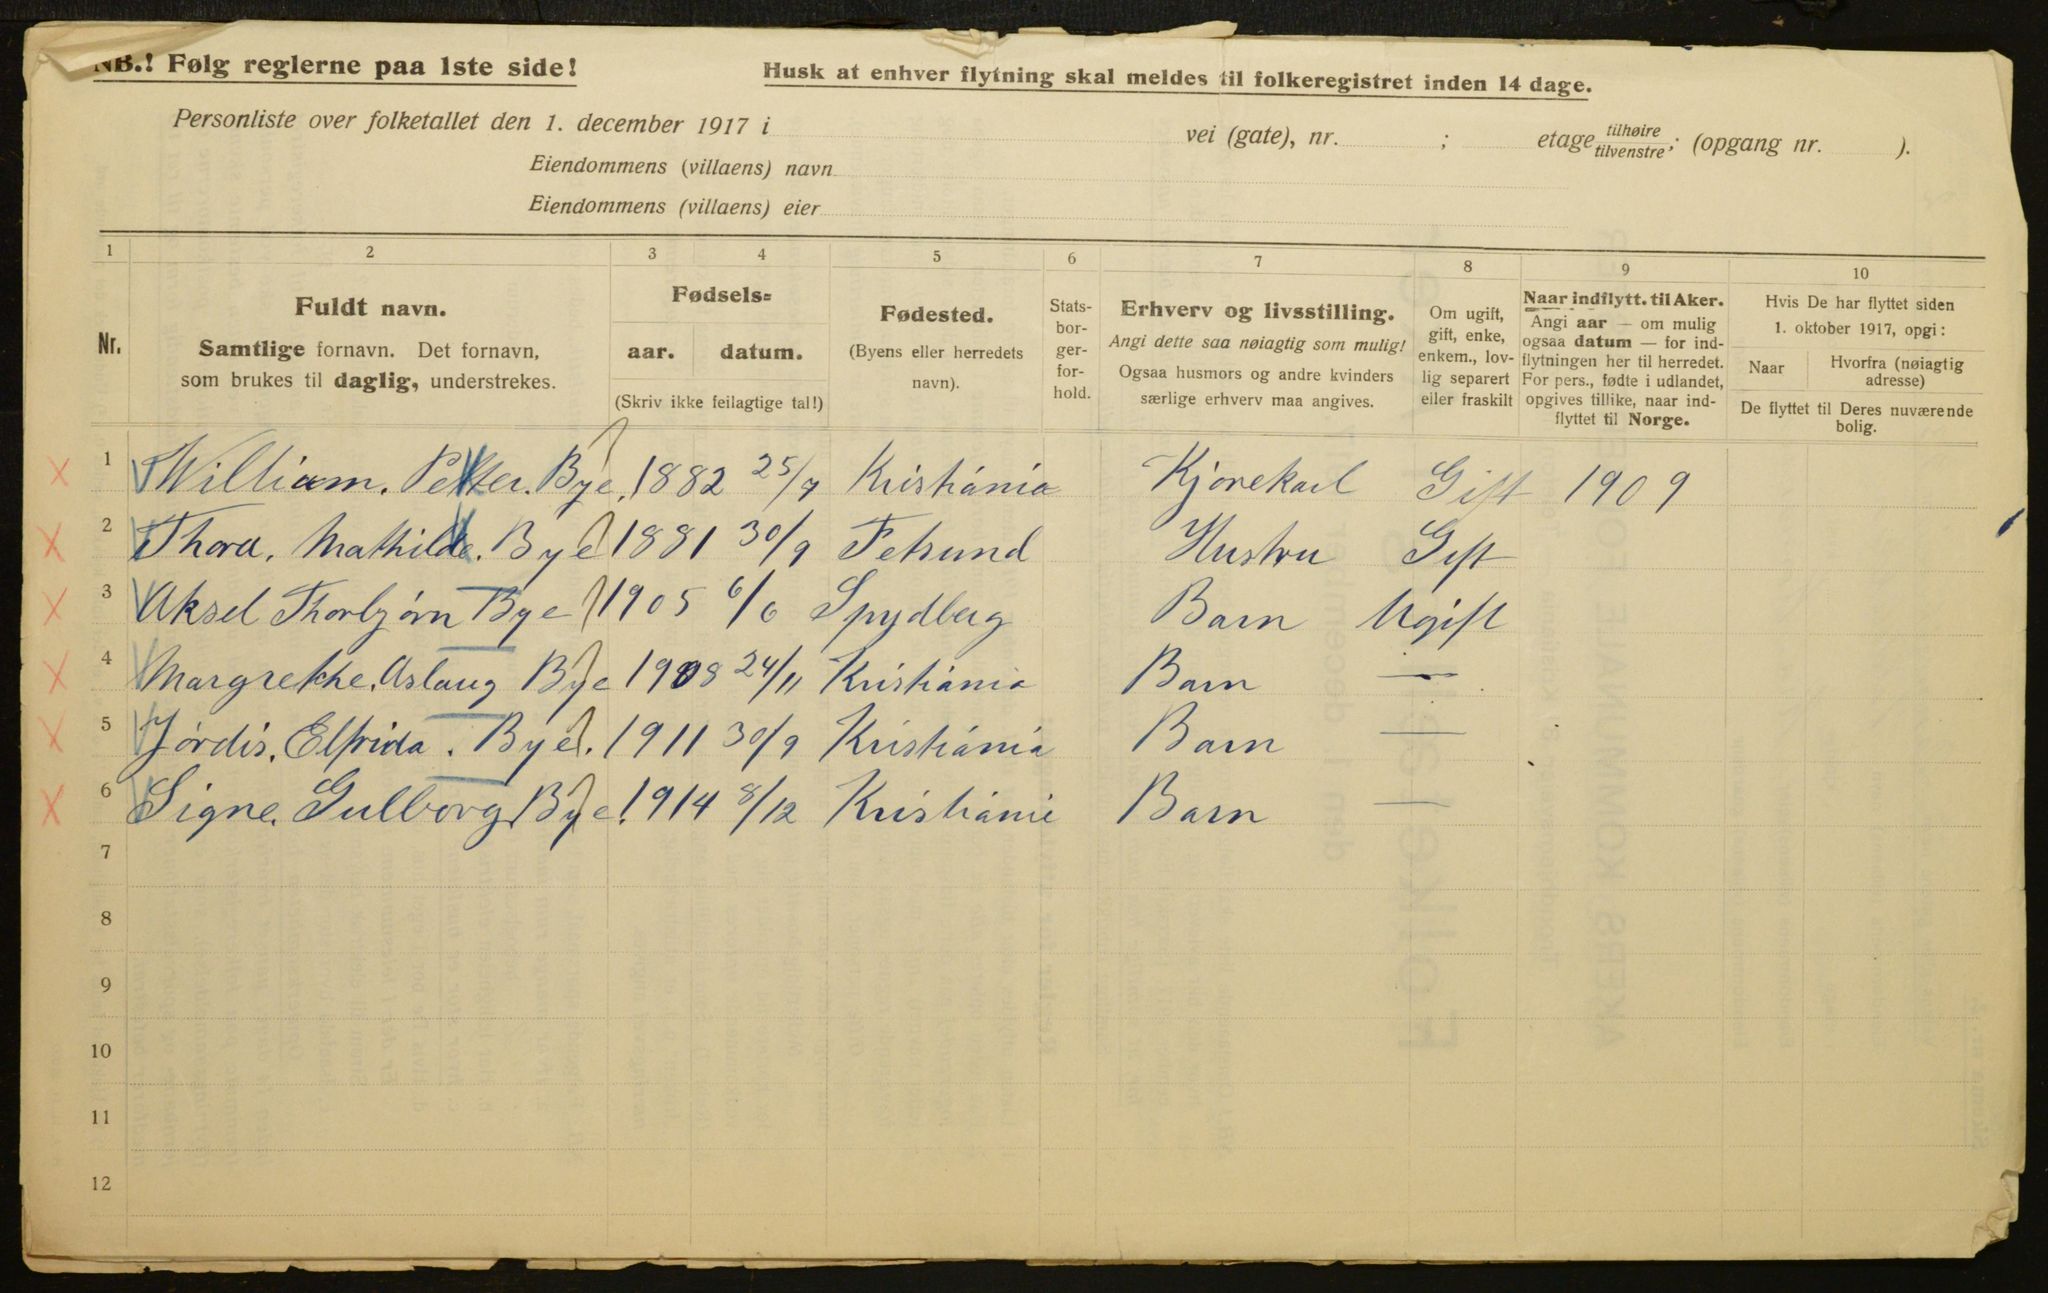 NB.! Følg reglerne paa 1ste side!
Husk at enhver flytning skal meldes til folkeregistret inden 14 dage.
Personliste over folketallet den 1. december 1917 i vei (gate), nr. ; etage tilhøire tilvenstre; (opgang nr. ).
Eiendommens (villaens) navn
Eiendommens (villaens) eier
1 2 3 4 5 6 7 8 9 10
Nr.
Fuldt navn.
Samtlige fornavn. Det fornavn,
som brukes til daglig, understrekes.
Fødsels=
aar. datum.
(Skriv ikke feilagtige tal!)
Fødested.
(Byens eller herredets
navn).
Stats-
bor-
ger-
for-
hold.
Erhverv og livsstilling.
Angi dette saa nøiagtig som mulig!
Ogsaa husmors og andre kvinders
særlige erhverv maa angives.
Om ugift,
gift, enke,
enkem., lov-
lig separert
eller fraskilt
Naar indflytt. til Aker.
Angi aar — om mulig
ogsaa datum — for ind-
flytningen her til herredet.
For pers., fødte i udlandet,
opgives tillike, naar ind-
flyttet til Norge.
Hvis De har flyttet siden
1. oktober 1917, opgi:
Naar
Hvorfra (nøiagtig
adresse)
De flyttet til Deres nuværende
bolig.
1 William. Petter. Bye. 1882 25/9 Kristiánia Kjørekarl Gift 1909
2 Thora. Mathilde. Bye 1881 30/9 Fetsund Hustru Gift
3 Aksel Thorbjørn Bye 1905 6/6 Spydberg Barn Ugift
4 Margrethe. Aslaug Bye 1908 24/11 Kristiánia Barn —
5 Jørdis. Elfrida. Bye. 1911 30/9 Kristiánia Barn —
6 Signe. Gulborg Bye. 1914 8/12 Kristiánia Barn —
7
8
9
10
11
12